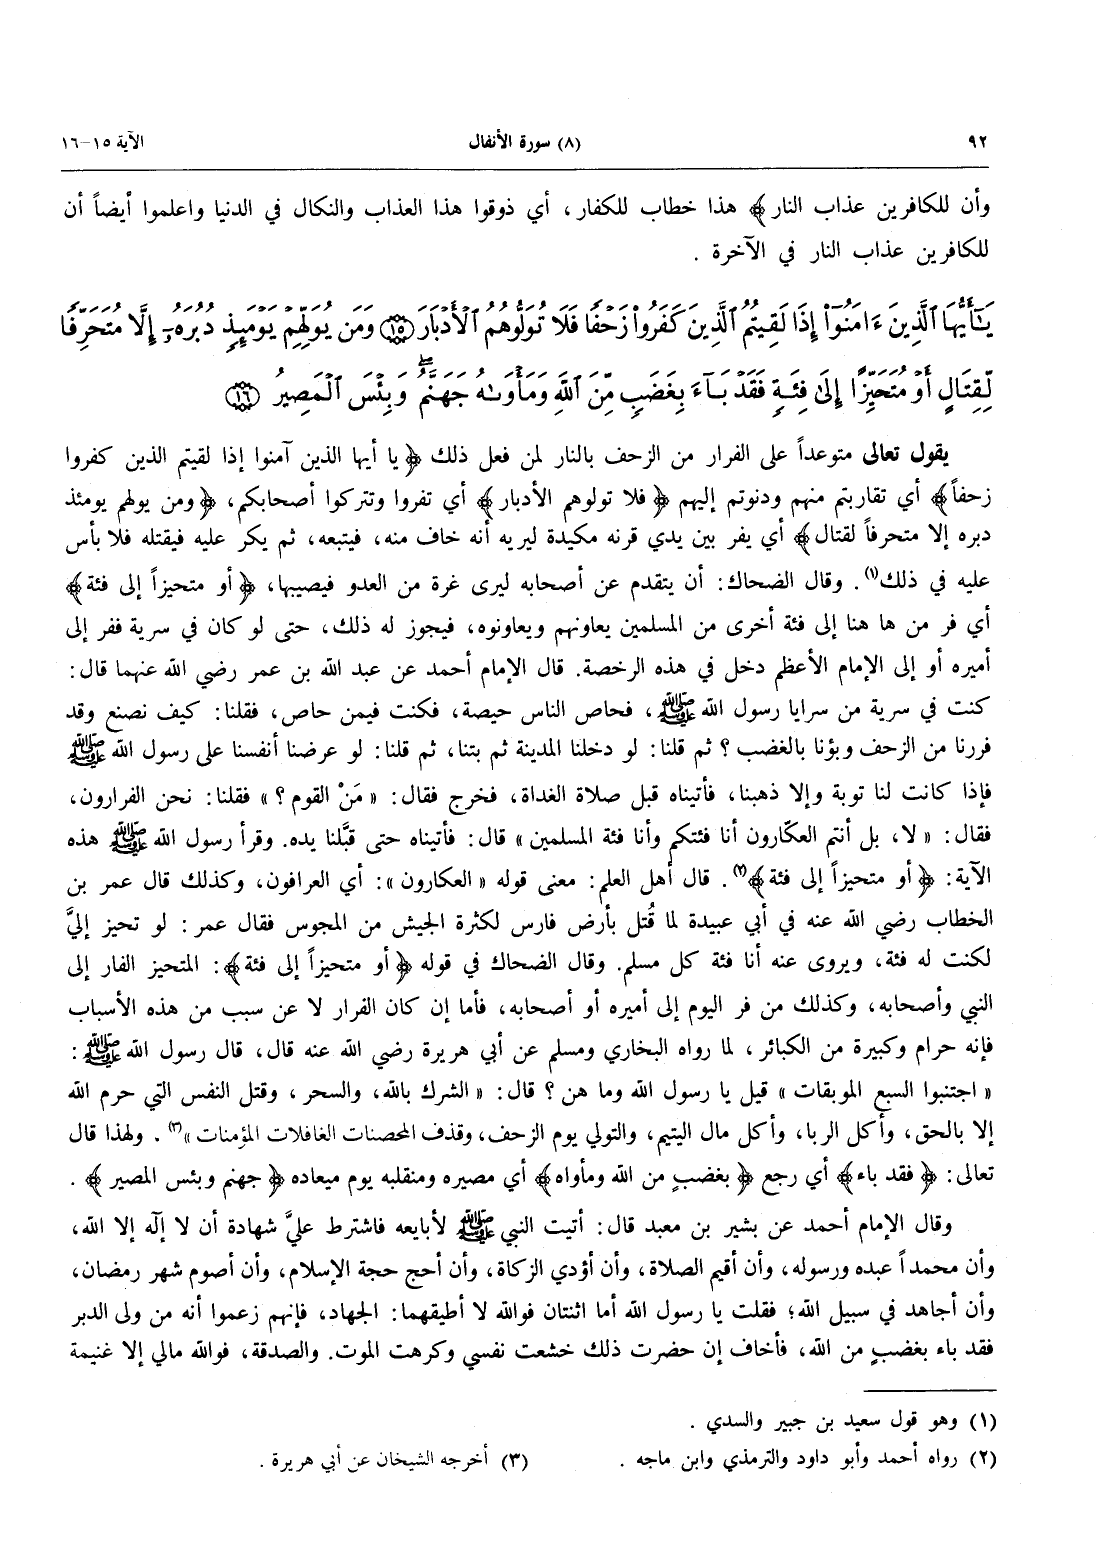 ٩٢ (٨) سورة الأنفال الآية ١٥-١٦
وأن للكافرين عذاب النار﴾ هذا خطاب للكفار، أي ذوقوا هذا العذاب والنكال في الدنيا واعلموا أيضاً أن
للكافرين عذاب النار في الآخرة .
يَٰٓأَيُّهَا ٱلَّذِينَ ءَامَنُوٓاْ إِذَا لَقِيتُمُ ٱلَّذِينَ كَفَرُواْ زَحْفًا فَلَا تُوَلُّوهُمُ ٱلْأَدْبَارَ ۝١٥ وَمَن يُوَلِّهِمْ يَوْمَئِذٍ دُبُرَهُۥٓ إِلَّا مُتَحَرِّفًا
لِّقِتَالٍ أَوْ مُتَحَيِّزًا إِلَىٰ فِئَةٍ فَقَدْ بَآءَ بِغَضَبٍ مِّنَ ٱللَّهِ وَمَأْوَىٰهُ جَهَنَّمُ ۖ وَبِئْسَ ٱلْمَصِيرُ ۝١٦
يقول تعالى متوعداً على الفرار من الزحف بالنار لمن فعل ذلك ﴿يا أيها الذين آمنوا إذا لقيتم الذين كفروا
زحفاً﴾ أي تقاربتم منهم ودنوتم إليهم ﴿فلا تولوهم الأدبار﴾ أي تفروا وتتركوا أصحابكم، ﴿ومن يولهم يومئذ
دبره إلا متحرفاً لقتال﴾ أي يفر بين يدي قرنه مكيدة ليريه أنه خاف منه، فيتبعه، ثم يكر عليه فيقتله فلا بأس
عليه في ذلك(١). وقال الضحاك: أن يتقدم عن أصحابه ليرى غرة من العدو فيصيبها، ﴿أو متحيزاً إلى فئة﴾
أي فر من ها هنا إلى فئة أخرى من المسلمين يعاونهم ويعاونوه، فيجوز له ذلك، حتى لو كان في سرية ففر إلى
أميره أو إلى الإمام الأعظم دخل في هذه الرخصة. قال الإمام أحمد عن عبد الله بن عمر رضي الله عنهما قال:
كنت في سرية من سرايا رسول الله ﷺ، فحاص الناس حيصة، فكنت فيمن حاص، فقلنا: كيف نصنع وقد
فررنا من الزحف وبؤنا بالغضب؟ ثم قلنا: لو دخلنا المدينة ثم بتنا، ثم قلنا: لو عرضنا أنفسنا على رسول الله ﷺ
فإذا كانت لنا توبة وإلا ذهبنا، فأتيناه قبل صلاة الغداة، فخرج فقال: «مَنْ القوم؟» فقلنا: نحن الفرارون،
فقال: «لا، بل أنتم العكّارون أنا فئتكم وأنا فئة المسلمين» قال: فأتيناه حتى قبَّلنا يده. وقرأ رسول الله ﷺ هذه
الآية: ﴿أو متحيزاً إلى فئة﴾(٢). قال أهل العلم: معنى قوله «العكارون»: أي العرافون، وكذلك قال عمر بن
الخطاب رضي الله عنه في أبي عبيدة لما قُتل بأرض فارس لكثرة الجيش من المجوس فقال عمر: لو تحيز إليَّ
لكنت له فئة، ويروى عنه أنا فئة كل مسلم. وقال الضحاك في قوله ﴿أو متحيزاً إلى فئة﴾: المتحيز الفار إلى
النبي وأصحابه، وكذلك من فر اليوم إلى أميره أو أصحابه، فأما إن كان الفرار لا عن سبب من هذه الأسباب
فإنه حرام وكبيرة من الكبائر، لما رواه البخاري ومسلم عن أبي هريرة رضي الله عنه قال، قال رسول الله ﷺ:
«اجتنبوا السبع الموبقات» قيل يا رسول الله وما هن؟ قال: «الشرك بالله، والسحر، وقتل النفس التي حرم الله
إلا بالحق، وأكل الربا، وأكل مال اليتيم، والتولي يوم الزحف، وقذف المحصنات الغافلات المؤمنات»(٣). ولهذا قال
تعالى: ﴿فقد باء﴾ أي رجع ﴿بغضبٍ من الله ومأواه﴾ أي مصيره ومنقلبه يوم ميعاده ﴿جهنم وبئس المصير﴾.
وقال الإمام أحمد عن بشير بن معبد قال: أتيت النبي ﷺ لأبايعه فاشترط عليَّ شهادة أن لا إلٰه إلا الله،
وأن محمداً عبده ورسوله، وأن أقيم الصلاة، وأن أؤدي الزكاة، وأن أحج حجة الإسلام، وأن أصوم شهر رمضان،
وأن أجاهد في سبيل الله؛ فقلت يا رسول الله أما اثنتان فوالله لا أطيقهما: الجهاد، فإنهم زعموا أنه من ولى الدبر
فقد باء بغضبٍ من الله، فأخاف إن حضرت ذلك خشعت نفسي وكرهت الموت. والصدقة، فوالله مالي إلا غنيمة
(١) وهو قول سعيد بن جبير والسدي .
(٢) رواه أحمد وأبو داود والترمذي وابن ماجه . (٣) أخرجه الشيخان عن أبي هريرة .